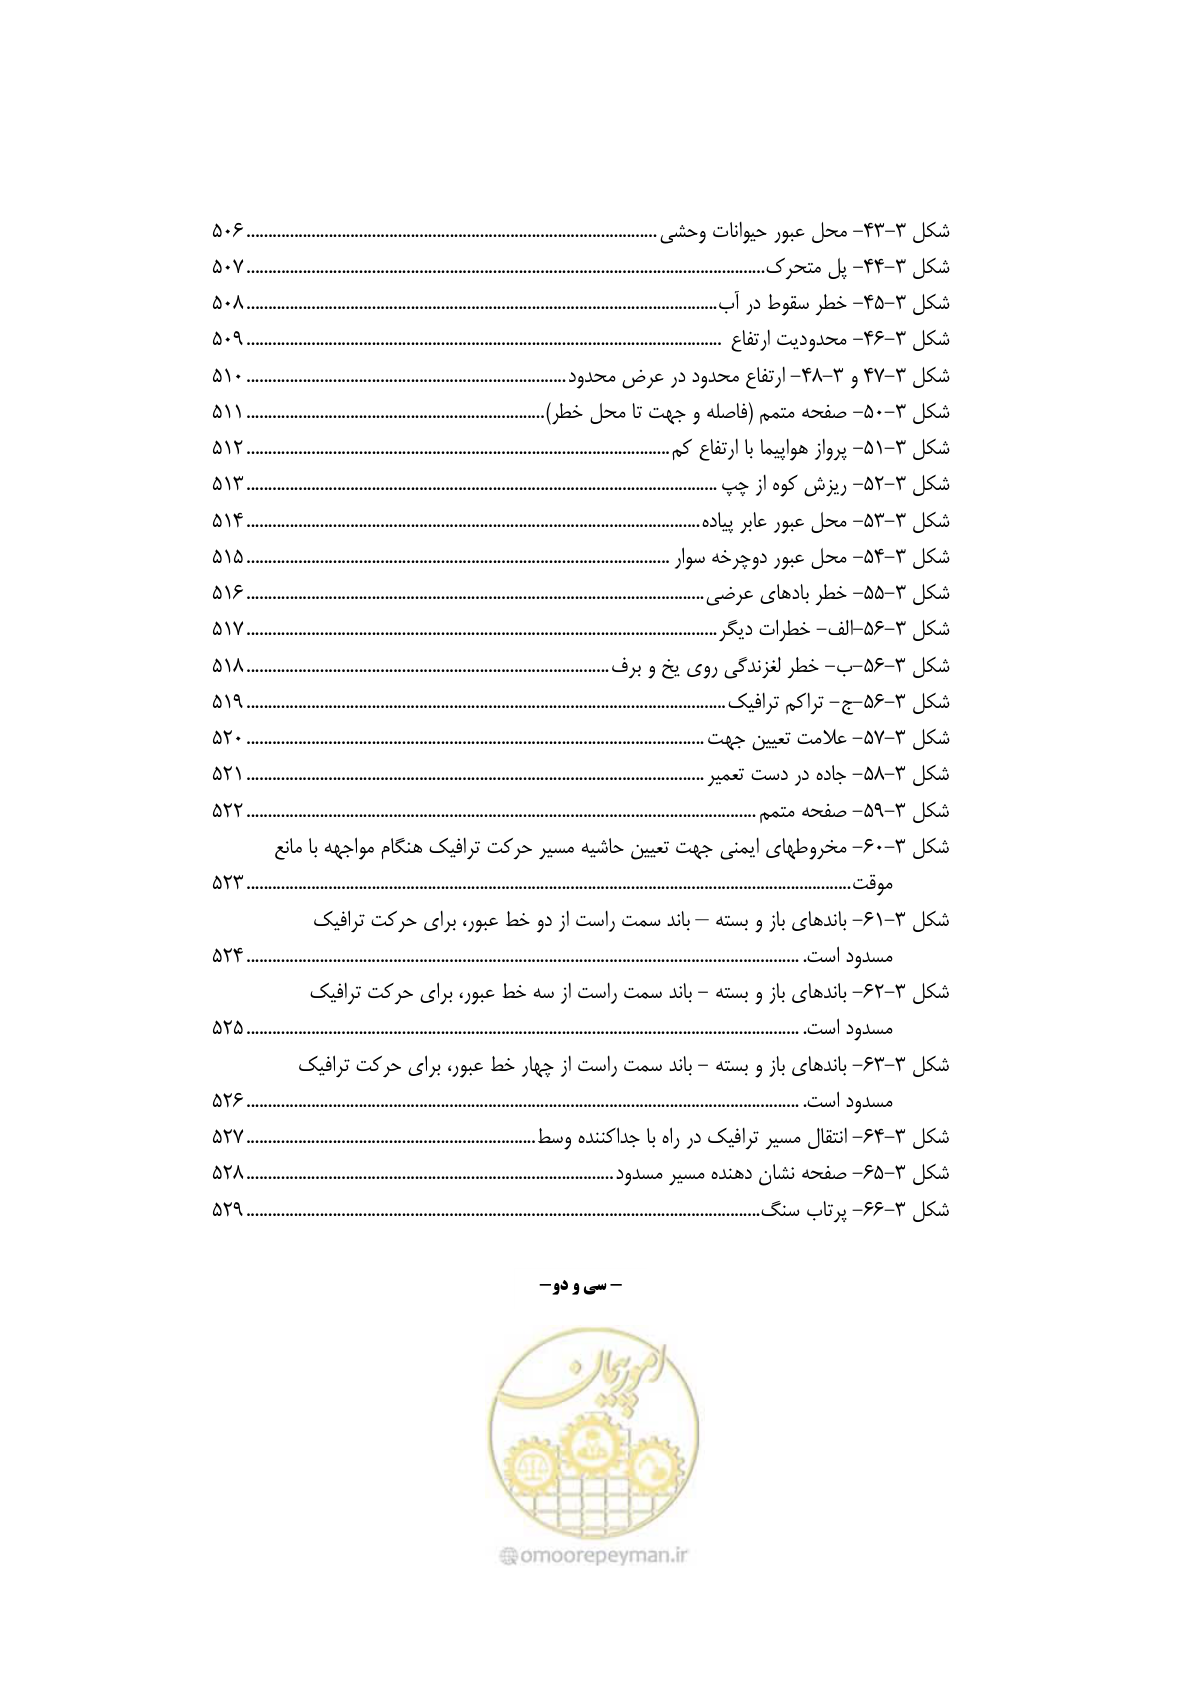 شکل ۳-۴۳- محل عبور حیوانات وحشی ........ ۵۰۶
شکل ۳-۴۴- پل متحرک ........ ۵۰۷
شکل ۳-۴۵- خطر سقوط در آب ........ ۵۰۸
شکل ۳-۴۶- محدودیت ارتفاع ........ ۵۰۹
شکل ۳-۴۷ و ۳-۴۸- ارتفاع محدود در عرض محدود ........ ۵۱۰
شکل ۳-۵۰- صفحه متمم (فاصله و جهت تا محل خطر) ........ ۵۱۱
شکل ۳-۵۱- پرواز هواپیما با ارتفاع کم ........ ۵۱۲
شکل ۳-۵۲- ریزش کوه از چپ ........ ۵۱۳
شکل ۳-۵۳- محل عبور عابر پیاده ........ ۵۱۴
شکل ۳-۵۴- محل عبور دوچرخه سوار ........ ۵۱۵
شکل ۳-۵۵- خطر بادهای عرضی ........ ۵۱۶
شکل ۳-۵۶-الف- خطرات دیگر ........ ۵۱۷
شکل ۳-۵۶-ب- خطر لغزندگی روی یخ و برف ........ ۵۱۸
شکل ۳-۵۶-ج- تراکم ترافیک ........ ۵۱۹
شکل ۳-۵۷- علامت تعیین جهت ........ ۵۲۰
شکل ۳-۵۸- جاده در دست تعمیر ........ ۵۲۱
شکل ۳-۵۹- صفحه متمم ........ ۵۲۲
شکل ۳-۶۰- مخروطهای ایمنی جهت تعیین حاشیه مسیر حرکت ترافیک هنگام مواجهه با مانع
موقت ........ ۵۲۳
شکل ۳-۶۱- باندهای باز و بسته – باند سمت راست از دو خط عبور، برای حرکت ترافیک
مسدود است. ........ ۵۲۴
شکل ۳-۶۲- باندهای باز و بسته - باند سمت راست از سه خط عبور، برای حرکت ترافیک
مسدود است. ........ ۵۲۵
شکل ۳-۶۳- باندهای باز و بسته - باند سمت راست از چهار خط عبور، برای حرکت ترافیک
مسدود است. ........ ۵۲۶
شکل ۳-۶۴- انتقال مسیر ترافیک در راه با جداکننده وسط ........ ۵۲۷
شکل ۳-۶۵- صفحه نشان دهنده مسیر مسدود ........ ۵۲۸
شکل ۳-۶۶- پرتاب سنگ ........ ۵۲۹
- سی و دو-
امور پیمان
@omoorepeyman.ir